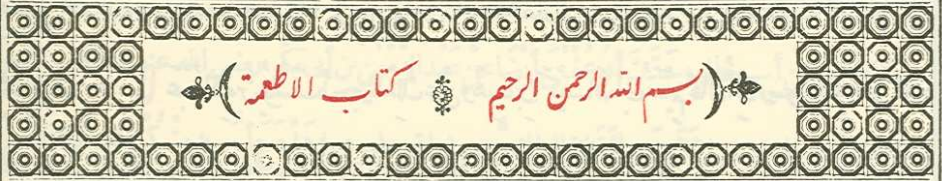 (بسم الله الرحمن الرحيم ۞ كتاب الاطعمة)